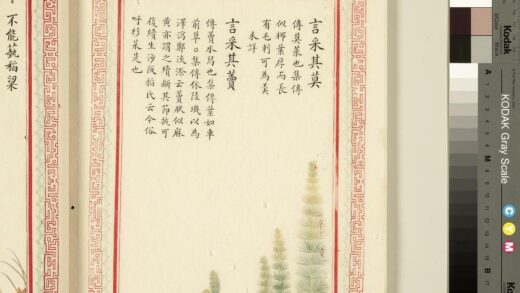 言采其莫
傳莫菜也集傳
似柳葉厚而長
有毛刺可為羹
未詳
言采其藚
傳藚水舄也集傳葉如車
前草○集傳依陸璣以為
澤瀉鄭浹漈云藚狀似麻
黃亦謂之續斷其節拔可
復續生沙阪稻氏云今俗
呼杉菜是也
不能蓺稻粱
Kodak
KODAK Gray Scale
C Y M
A 1 2 3 4 5 6 M 8 9 10 11 12 13 14 15 B 17